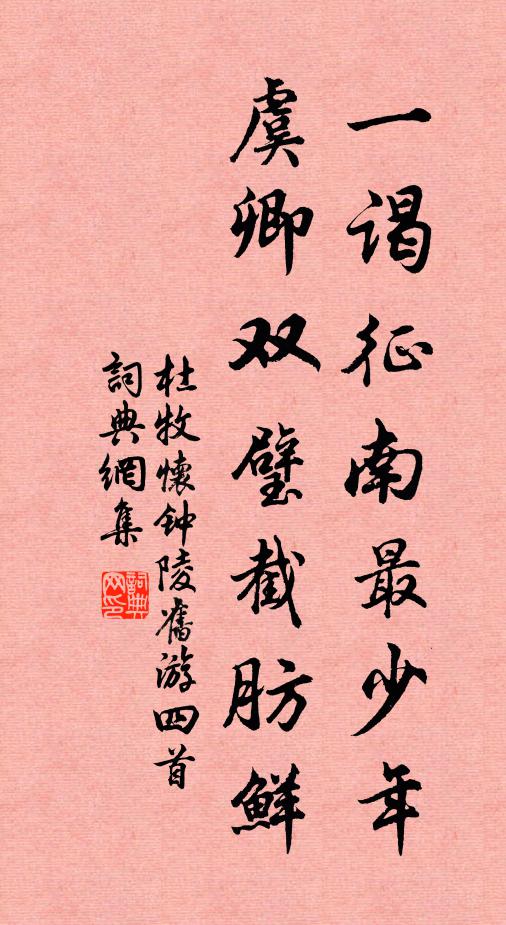 一谒征南最少年
虞卿双璧截肪鲜
杜牧怀钟陵旧游四首
詞典網集
詞典网印